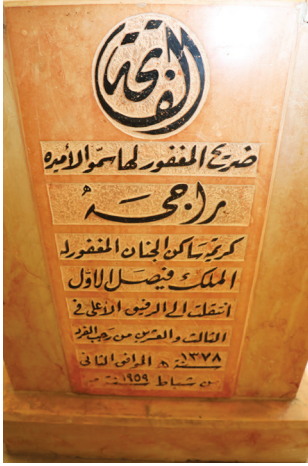 الفاتحة
ضريح المغفور لها سمو الأميرة
راجحة
كريمة ساكن الجنان المغفور له
الملك فيصل الأول
انتقلت الى الرفيق الأعلى في
الثالث والعشرين من رجب الفرد
سنة ١٣٧٨ هـ الموافق الثاني
من شباط سنة ١٩٥٩ م